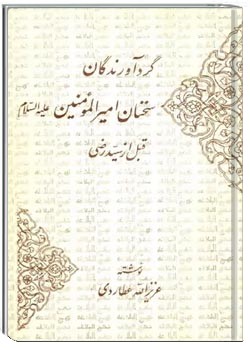 گردآورندگان
سخنان امیرالمؤمنین علیه‌السلام
قبل از سید رضی
نوشته
عزیزالله عطاردی